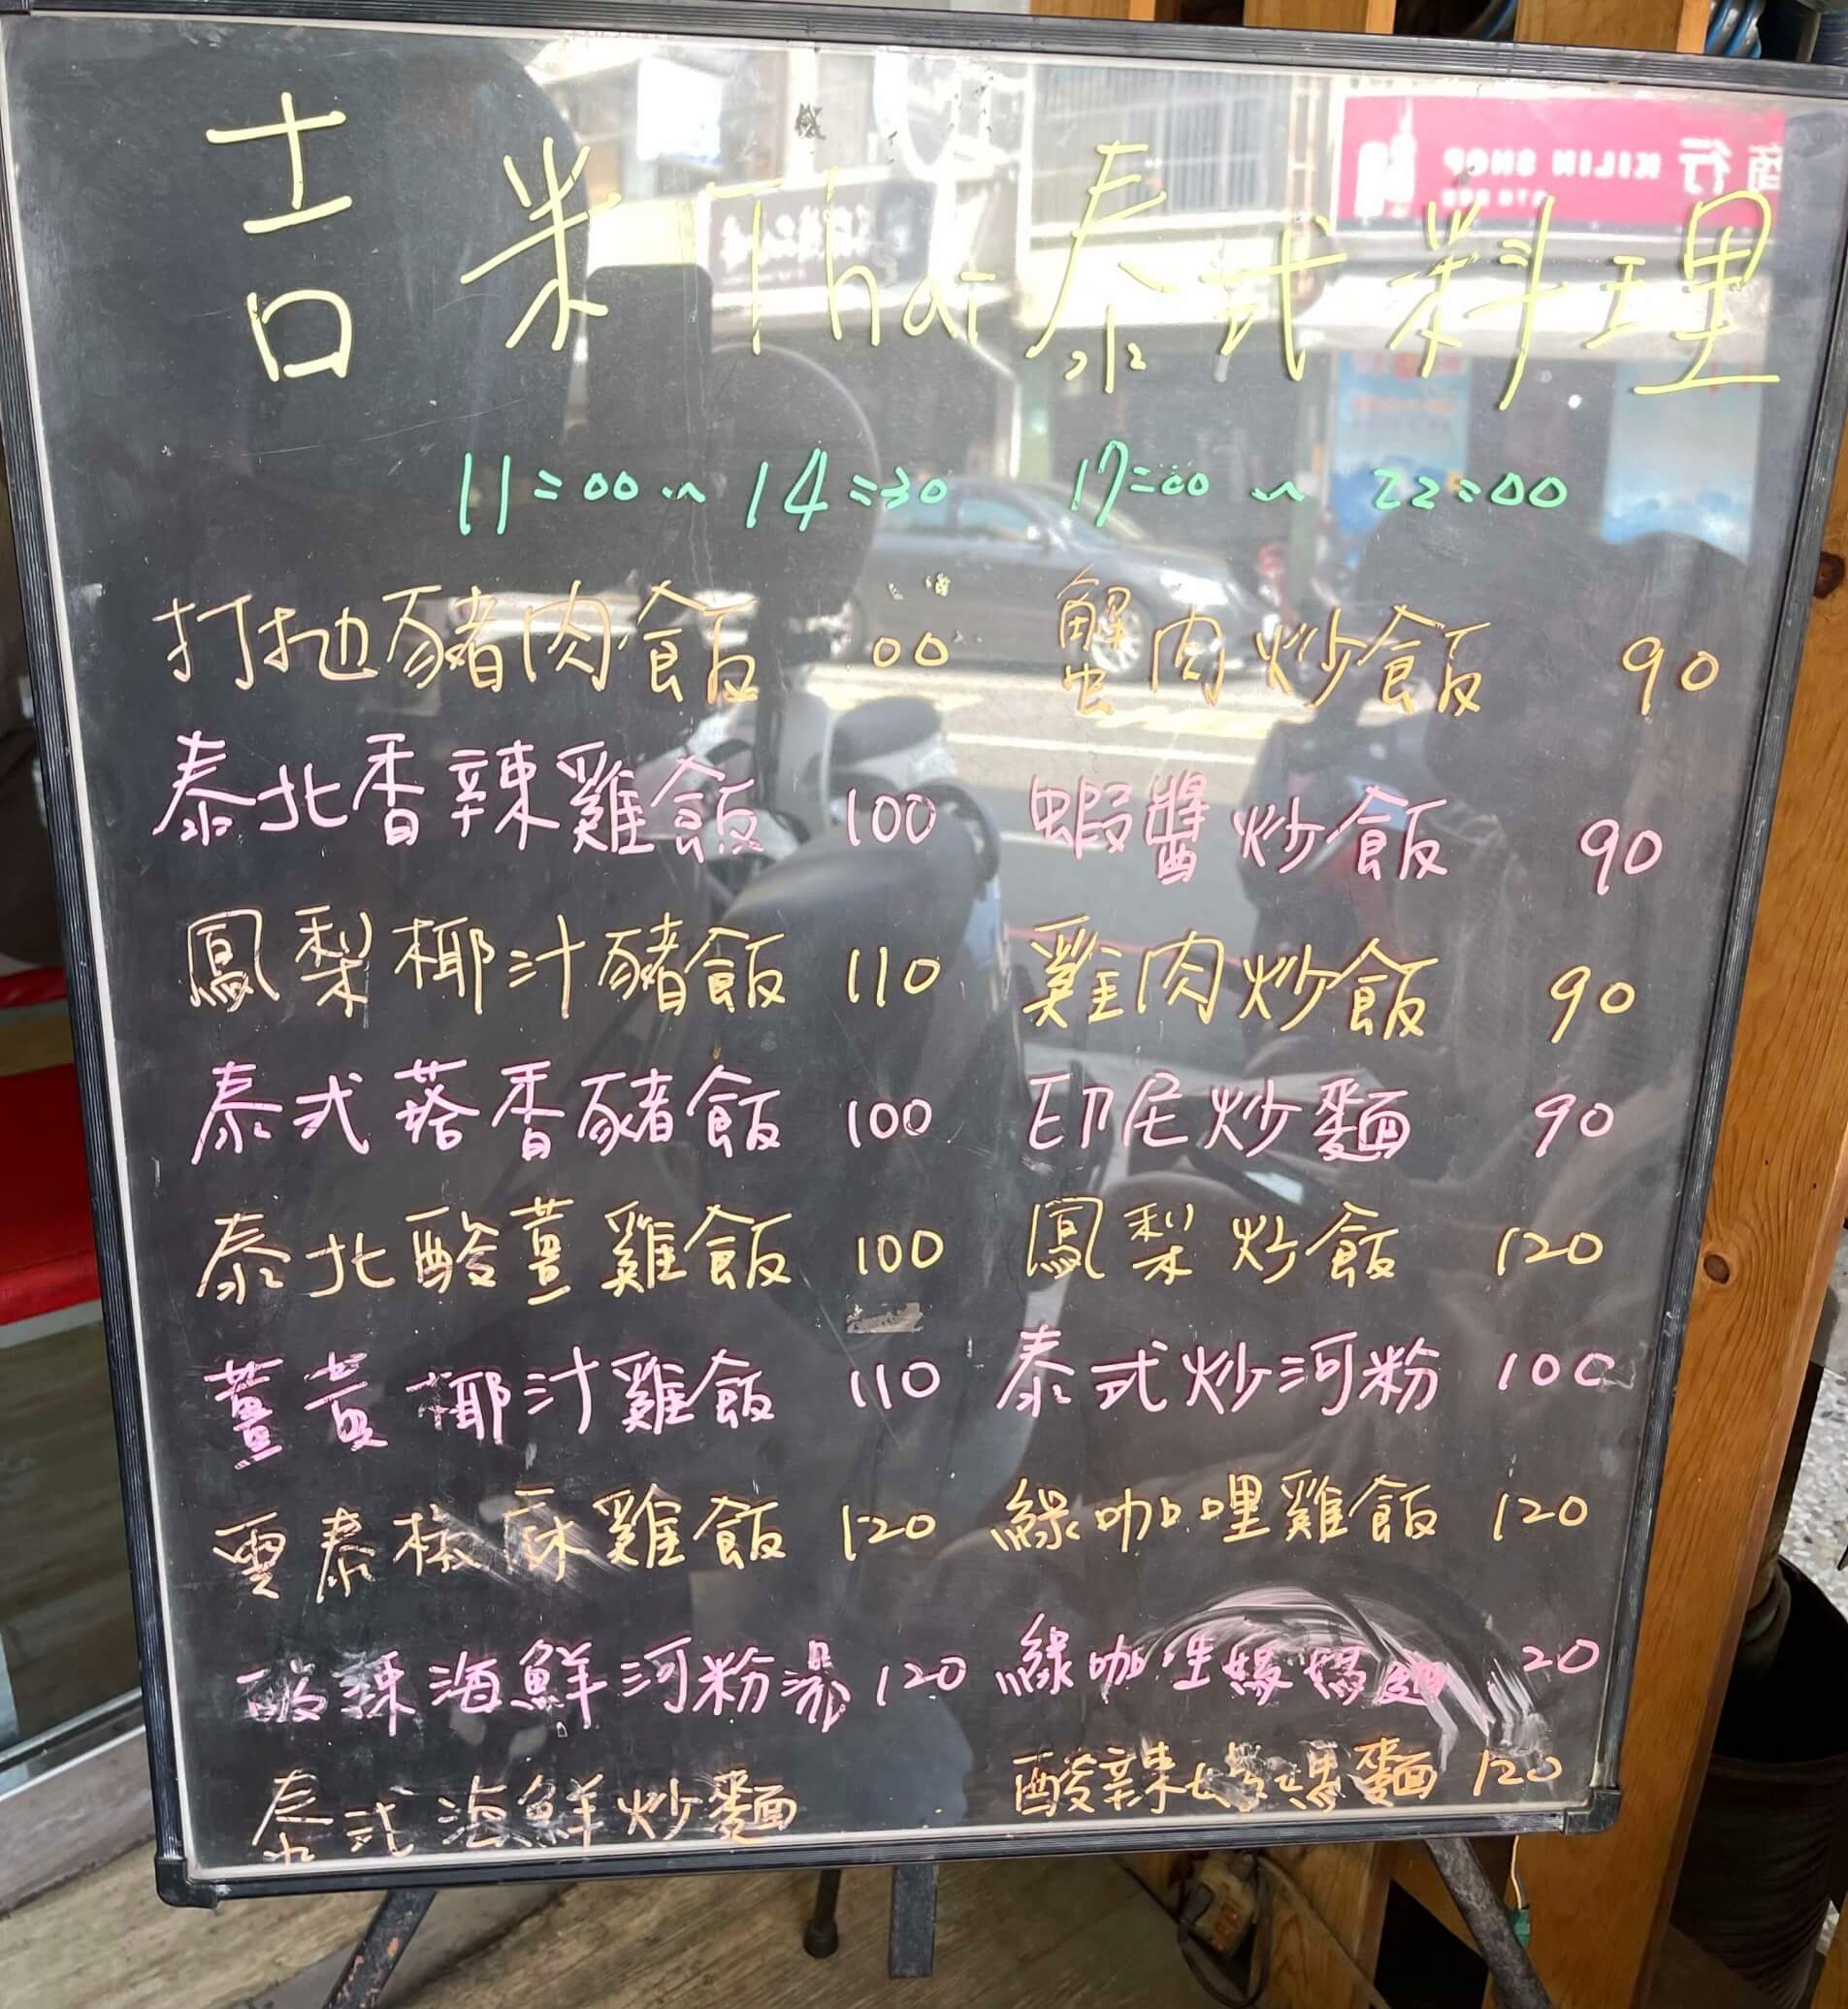 吉米Thai泰式料理
11:00~14:30 17:00~22:00
打拋豬肉飯 00
泰北香辣雞飯 100
鳳梨椰汁豬飯 110
泰式蒜香豬飯 100
泰北酸薑雞飯 100
薑黃椰汁雞飯 110
雲泰椒麻雞飯 120
酸辣海鮮河粉湯 120
泰式海鮮炒麵
蟹肉炒飯 90
蝦醬炒飯 90
雞肉炒飯 90
印尼炒麵 90
鳳梨炒飯 120
泰式炒河粉 100
綠咖哩雞飯 120
綠咖 20
酸辣 麵 120
KILIN SHOP